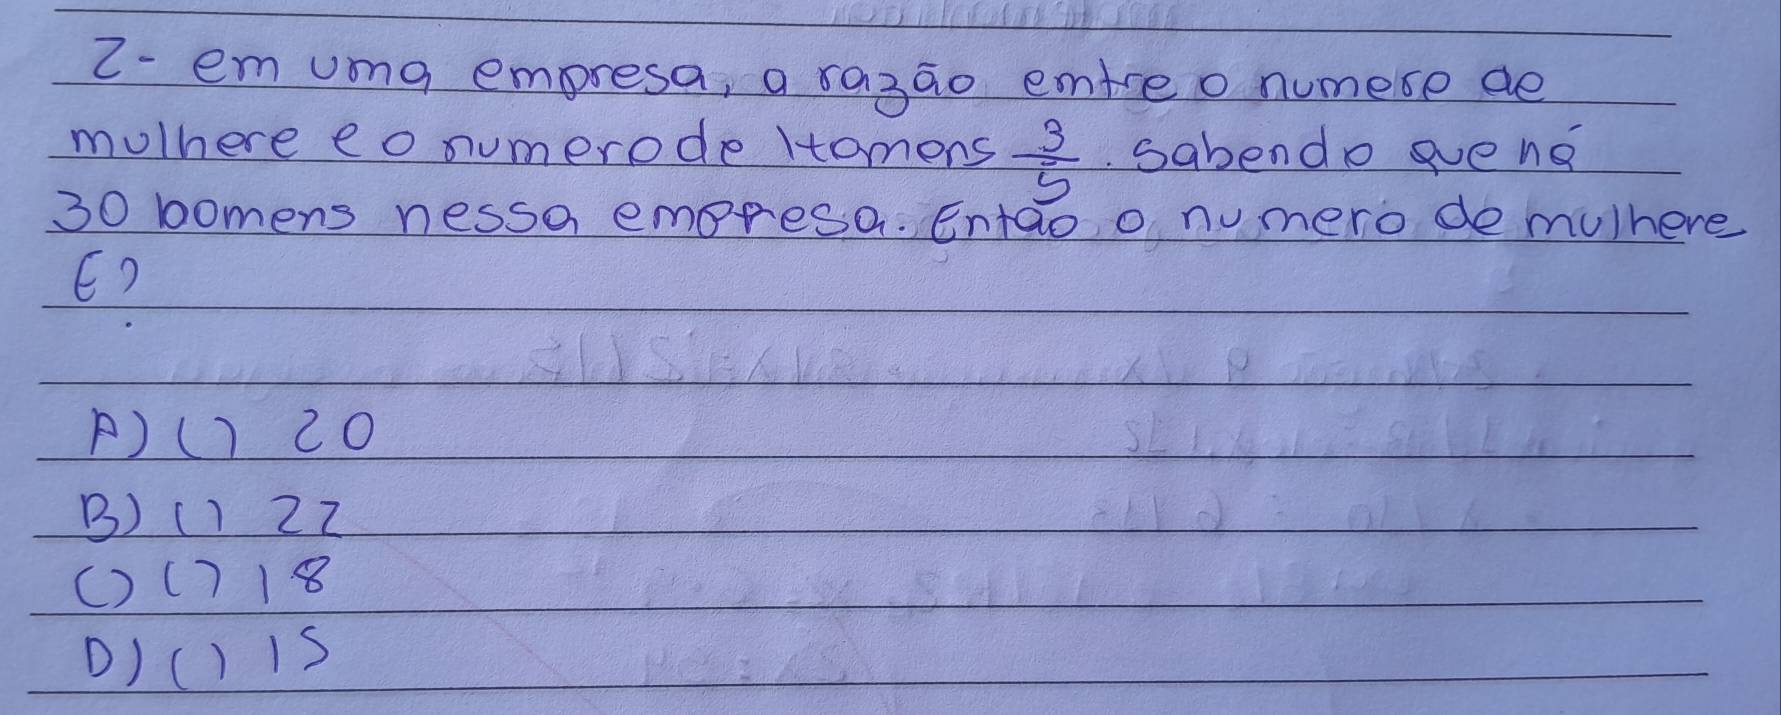 2- em uma empresa, a razão emtre o numero de
mulhere e o numero de Homens 3/5. sabendo que há
30 homens nessa empresa. Então o numero de mulhere
É?
A) ( ) 20
B) ( ) 22
C) ( ) 18
D) ( ) 15